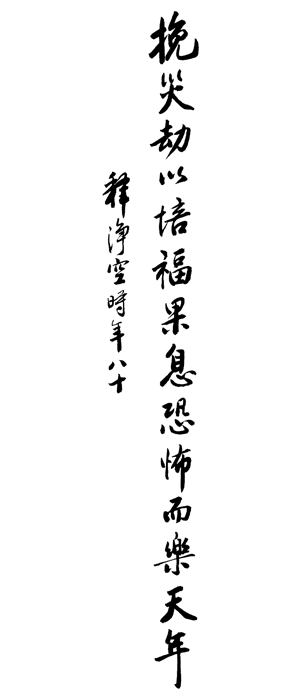 挽災劫以培福果息恐怖而樂天年
釋淨空時年八十